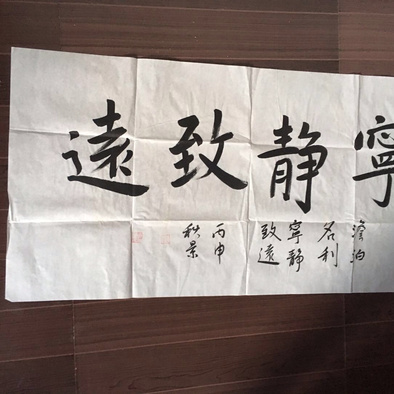 寧静致遠
澹泊
名利
寧静
致遠
丙申
秋景